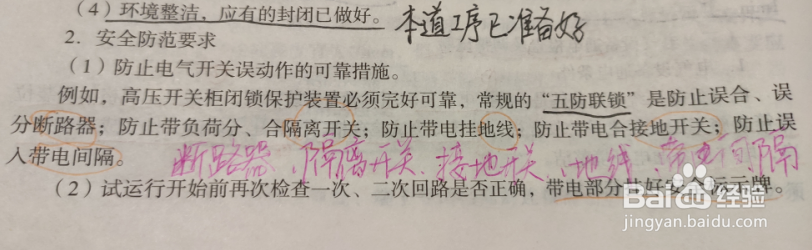 （4）环境整洁，应有的封闭已做好。 本道工序已准备好
2. 安全防范要求
（1）防止电气开关误动作的可靠措施。
例如，高压开关柜闭锁保护装置必须完好可靠，常规的“五防联锁”是防止误合、误
分断路器；防止带负荷分、合隔离开关；防止带电挂地线；防止带电合接地开关；防止误
入带电间隔。
断路器、隔离开关、接地开关、地线、带电间隔
（2）试运行开始前再次检查一次、二次回路是否正确，带电部分挂好安全标示牌。
Baidu 经验
jingyan.baidu.com